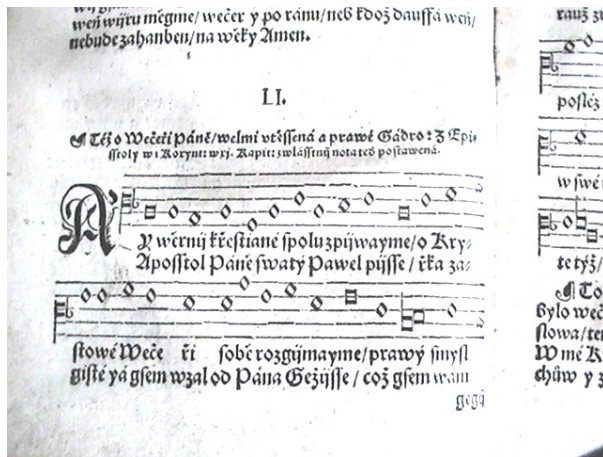 weń wijru mēgme/wečer y po ránu/neb kdož dauffá weń/
nebude zahanben/na wěky Amen.
LI.
¶ Též o Wečeři Páně/welmi vtěssená a prawé Gádro: Z Epi-
sstoly w 1 Korynt: w xj. Kapit: zwlásstnij nota teď postawená.
AY wěrnij křestiané spolu zpijwayme/o Kry-
Aposstol Páně swatý Pawel pijsse/řka za-
stowě Weče ři sobě rozgijmayme/prawý smysl
gistě yá gsem wzal od Pána Gežijsse/což gsem wám
gegij
rauž
poslěz
w swé
te týž/
¶ To
Bylo weč
slowa/
W mé K
chůw y z